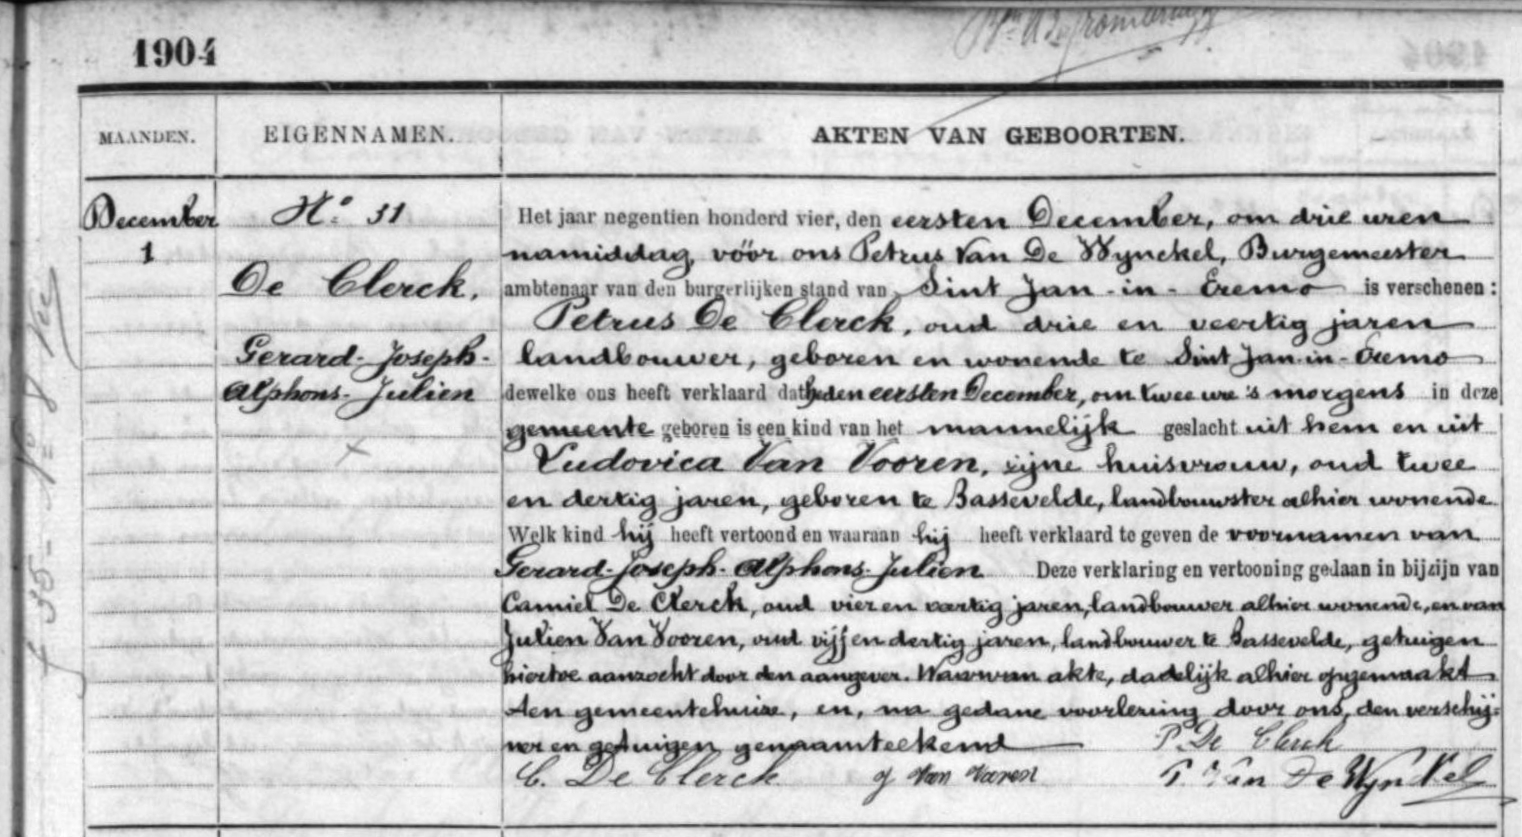 1904
MAANDEN.
EIGENNAMEN.
AKTEN VAN GEBOORTEN.
December
1
No 31
De Clerck,
Gerard-Joseph-
Alphons-Julien
Het jaar negentien honderd vier, den eersten December, om drie uren
namiddag, vóór ons Petrus Van De Wynckel, Burgemeester
ambtenaar van den burgerlijken stand van Sint Jan-in-Eremo is verschenen:
Petrus De Clerck, oud drie en veertig jaren
landbouwer, geboren en wonende te Sint Jan-in-Eremo
dewelke ons heeft verklaard dat heden eersten December, om twee ure 's morgens in deze
gemeente geboren is een kind van het mannelijk geslacht uit hem en uit
Ludovica Van Vooren, zijne huisvrouw, oud twee
en dertig jaren, geboren te Bassevelde, landbouwster alhier wonende
Welk kind hij heeft vertoond en waaraan hij heeft verklaard te geven de voornamen van
Gerard-Joseph-Alphons-Julien Deze verklaring en vertooning gedaan in bijzijn van
Camiel De Clerck, oud vier en veertig jaren, landbouwer alhier wonende, en van
Julien Van Vooren, oud vijf en dertig jaren, landbouwer te Bassevelde, getuigen
hiertoe aanzocht door den aangever. Waarvan akte, dadelijk alhier opgemaakt
ten gemeentehuize, en, na gedane voorlezing door ons, den verschij-
ner en getuigen genaamteekend
P. De Clerck
C. De Clerck
J Van Vooren
P. Van De Wynckel